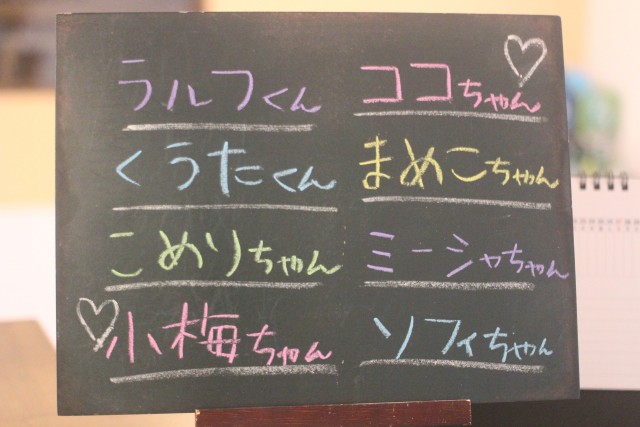 ラルフくん
ココちゃん
くうたくん
まめこちゃん
こめりちゃん
ミーシャちゃん
小梅ちゃん
ソフィちゃん